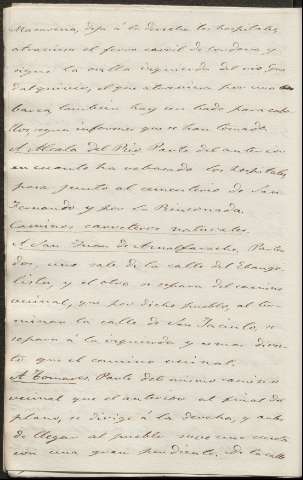 Macarena, deja á la derecha los hospitales,
atraviesa el ferro carril de Cordova, y
sigue la orilla izquierda del rio Gua
dalquivir, el que atraviesa por una
barca, tambien hay un bado para caba
llos, segun informes que se han tomado.
A Alcalá del Rio, Parte del anterior
en cuanto ha rebasado los hospitales,
pasa junto al cementerio de San
Fernando y por la Rinconada.
Caminos carreteros naturales.
A San Juan de Aznalfarache, Parten
dos, uno sale de la calle del Evange
lista, y el otro se separa del camino
vecinal, que por dicho pueblo, al ter
minar la calle de San Jacinto, se
separa á la izquierda y es mas direc
to que el camino vecinal.
A Tomares, Parte del mismo camino
vecinal que el anterior al final del
plano, se dirige á la derecha, y antes
de llegar al pueblo sube una cuesta
con una gran pendiente. De la calle